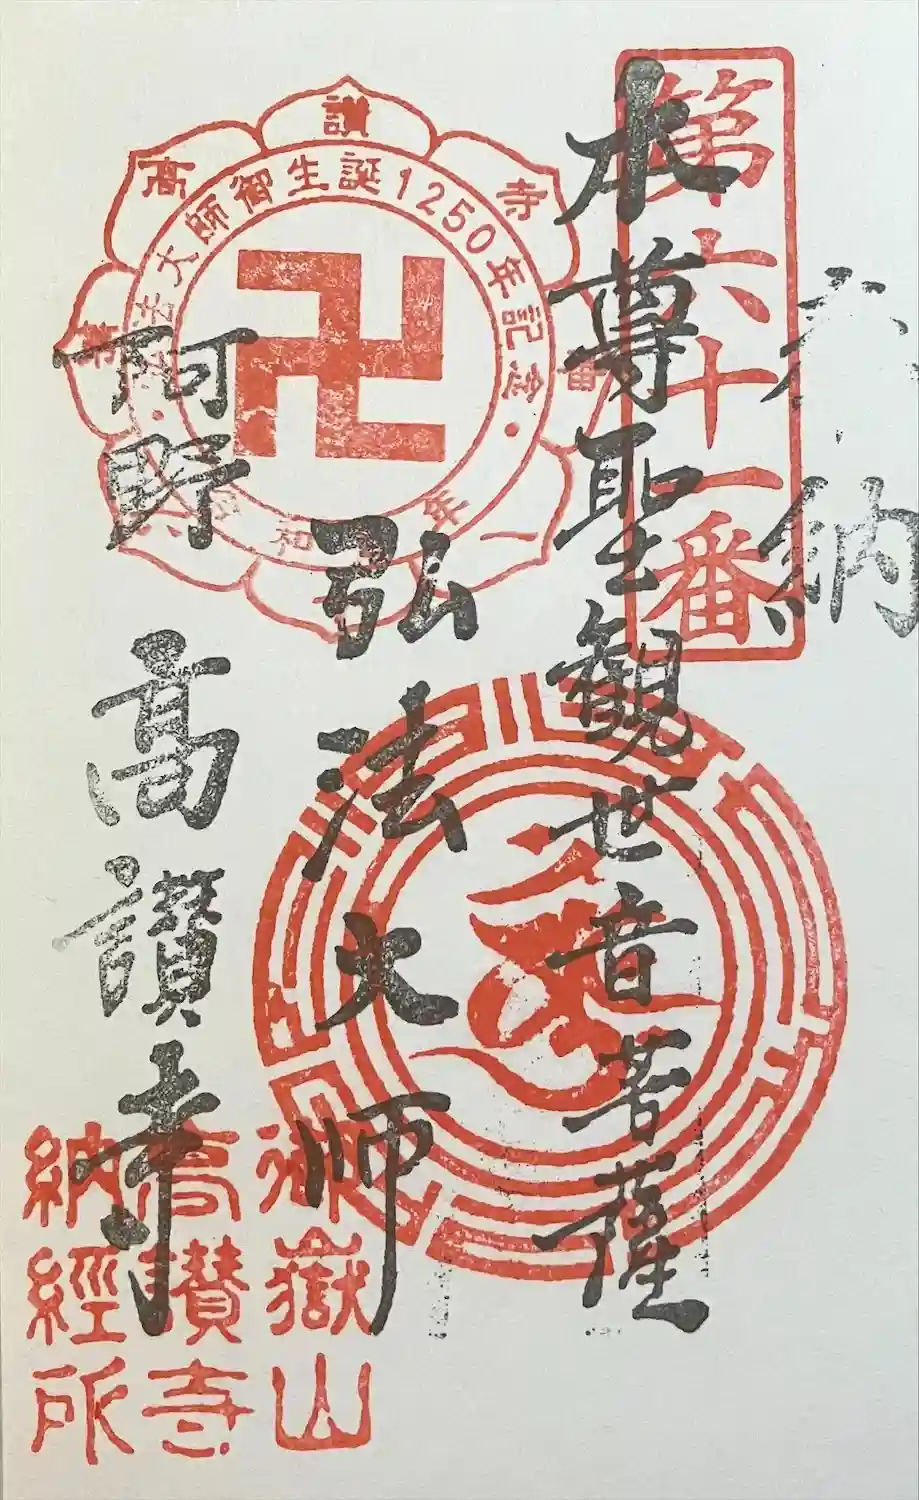 納
第六十一番
本尊聖観世音菩薩
弘法大師
阿野
高讃寺
高讃寺
弘法大師御生誕1250年記念
御嶽山
高讃寺
納経所